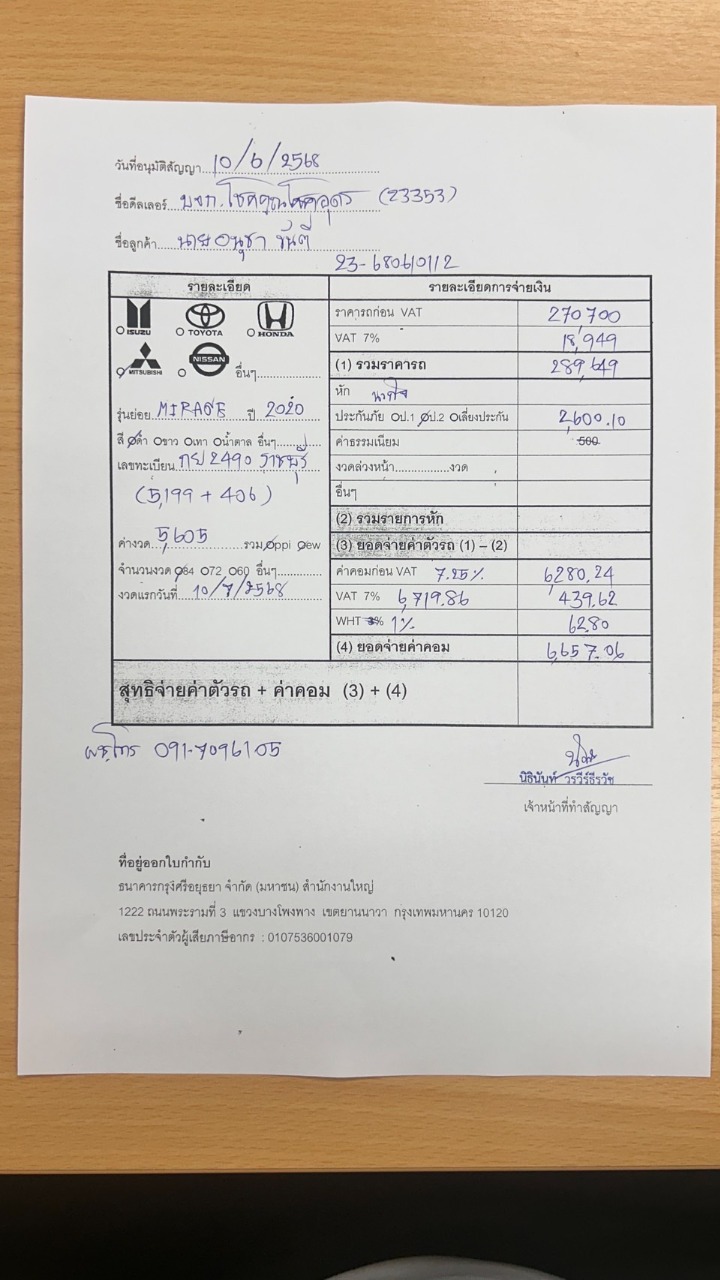 วันที่อนุมัติสัญญา 10/6/2568
ชื่อดีลเลอร์ บจก.โชคคูณโชคอุดร (23353)
ชื่อลูกค้า นาย อนุชา ขันตี
23-68060112
รายละเอียด
ISUZU TOYOTA HONDA
MITSUBISHI NISSAN อื่นๆ
รุ่นย่อย MIRAGE ปี 2020
สี ดำ ขาว เทา น้ำตาล อื่นๆ
เลขทะเบียน กย 2490 ราชบุรี
(5,199 + 406)
ค่างวด 5,605 รวม ppi ew
จำนวนงวด 84 72 60 อื่นๆ
งวดแรกวันที่ 10/7/2568
รายละเอียดการจ่ายเงิน
ราคารถก่อน VAT 270,700
VAT 7% 18,949
(1) รวมราคารถ 289,649
หัก
ประกันภัย ป.1 ป.2 เลี่ยงประกัน 2,600.10
ค่าธรรมเนียม 500
งวดล่วงหน้า................งวด
อื่นๆ
(2) รวมรายการหัก
(3) ยอดจ่ายค่าตัวรถ (1) – (2)
ค่าคอมก่อน VAT 7.25% 6,280.24
VAT 7% 6,719.86 439.62
WHT 3% 1% 62.80
(4) ยอดจ่ายค่าคอม 6,657.06
สุทธิจ่ายค่าตัวรถ + ค่าคอม (3) + (4)
โทร 091-7096105
นิธินันท์ วรวีร์ธีรวัช
เจ้าหน้าที่ทำสัญญา
ที่อยู่ออกใบกำกับ
ธนาคารกรุงศรีอยุธยา จำกัด (มหาชน) สำนักงานใหญ่
1222 ถนนพระรามที่ 3 แขวงบางโพงพาง เขตยานนาวา กรุงเทพมหานคร 10120
เลขประจำตัวผู้เสียภาษีอากร : 0107536001079